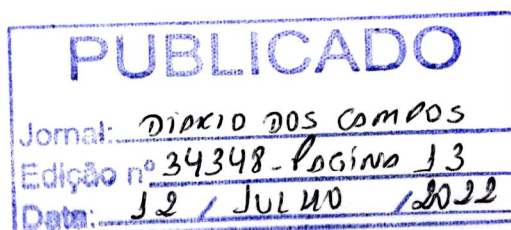 PUBLICADO
Jornal: DIARIO DOS CAMPOS
Edição nº 34348 - PAGINA 13
Data: 12 / JULHO / 2022